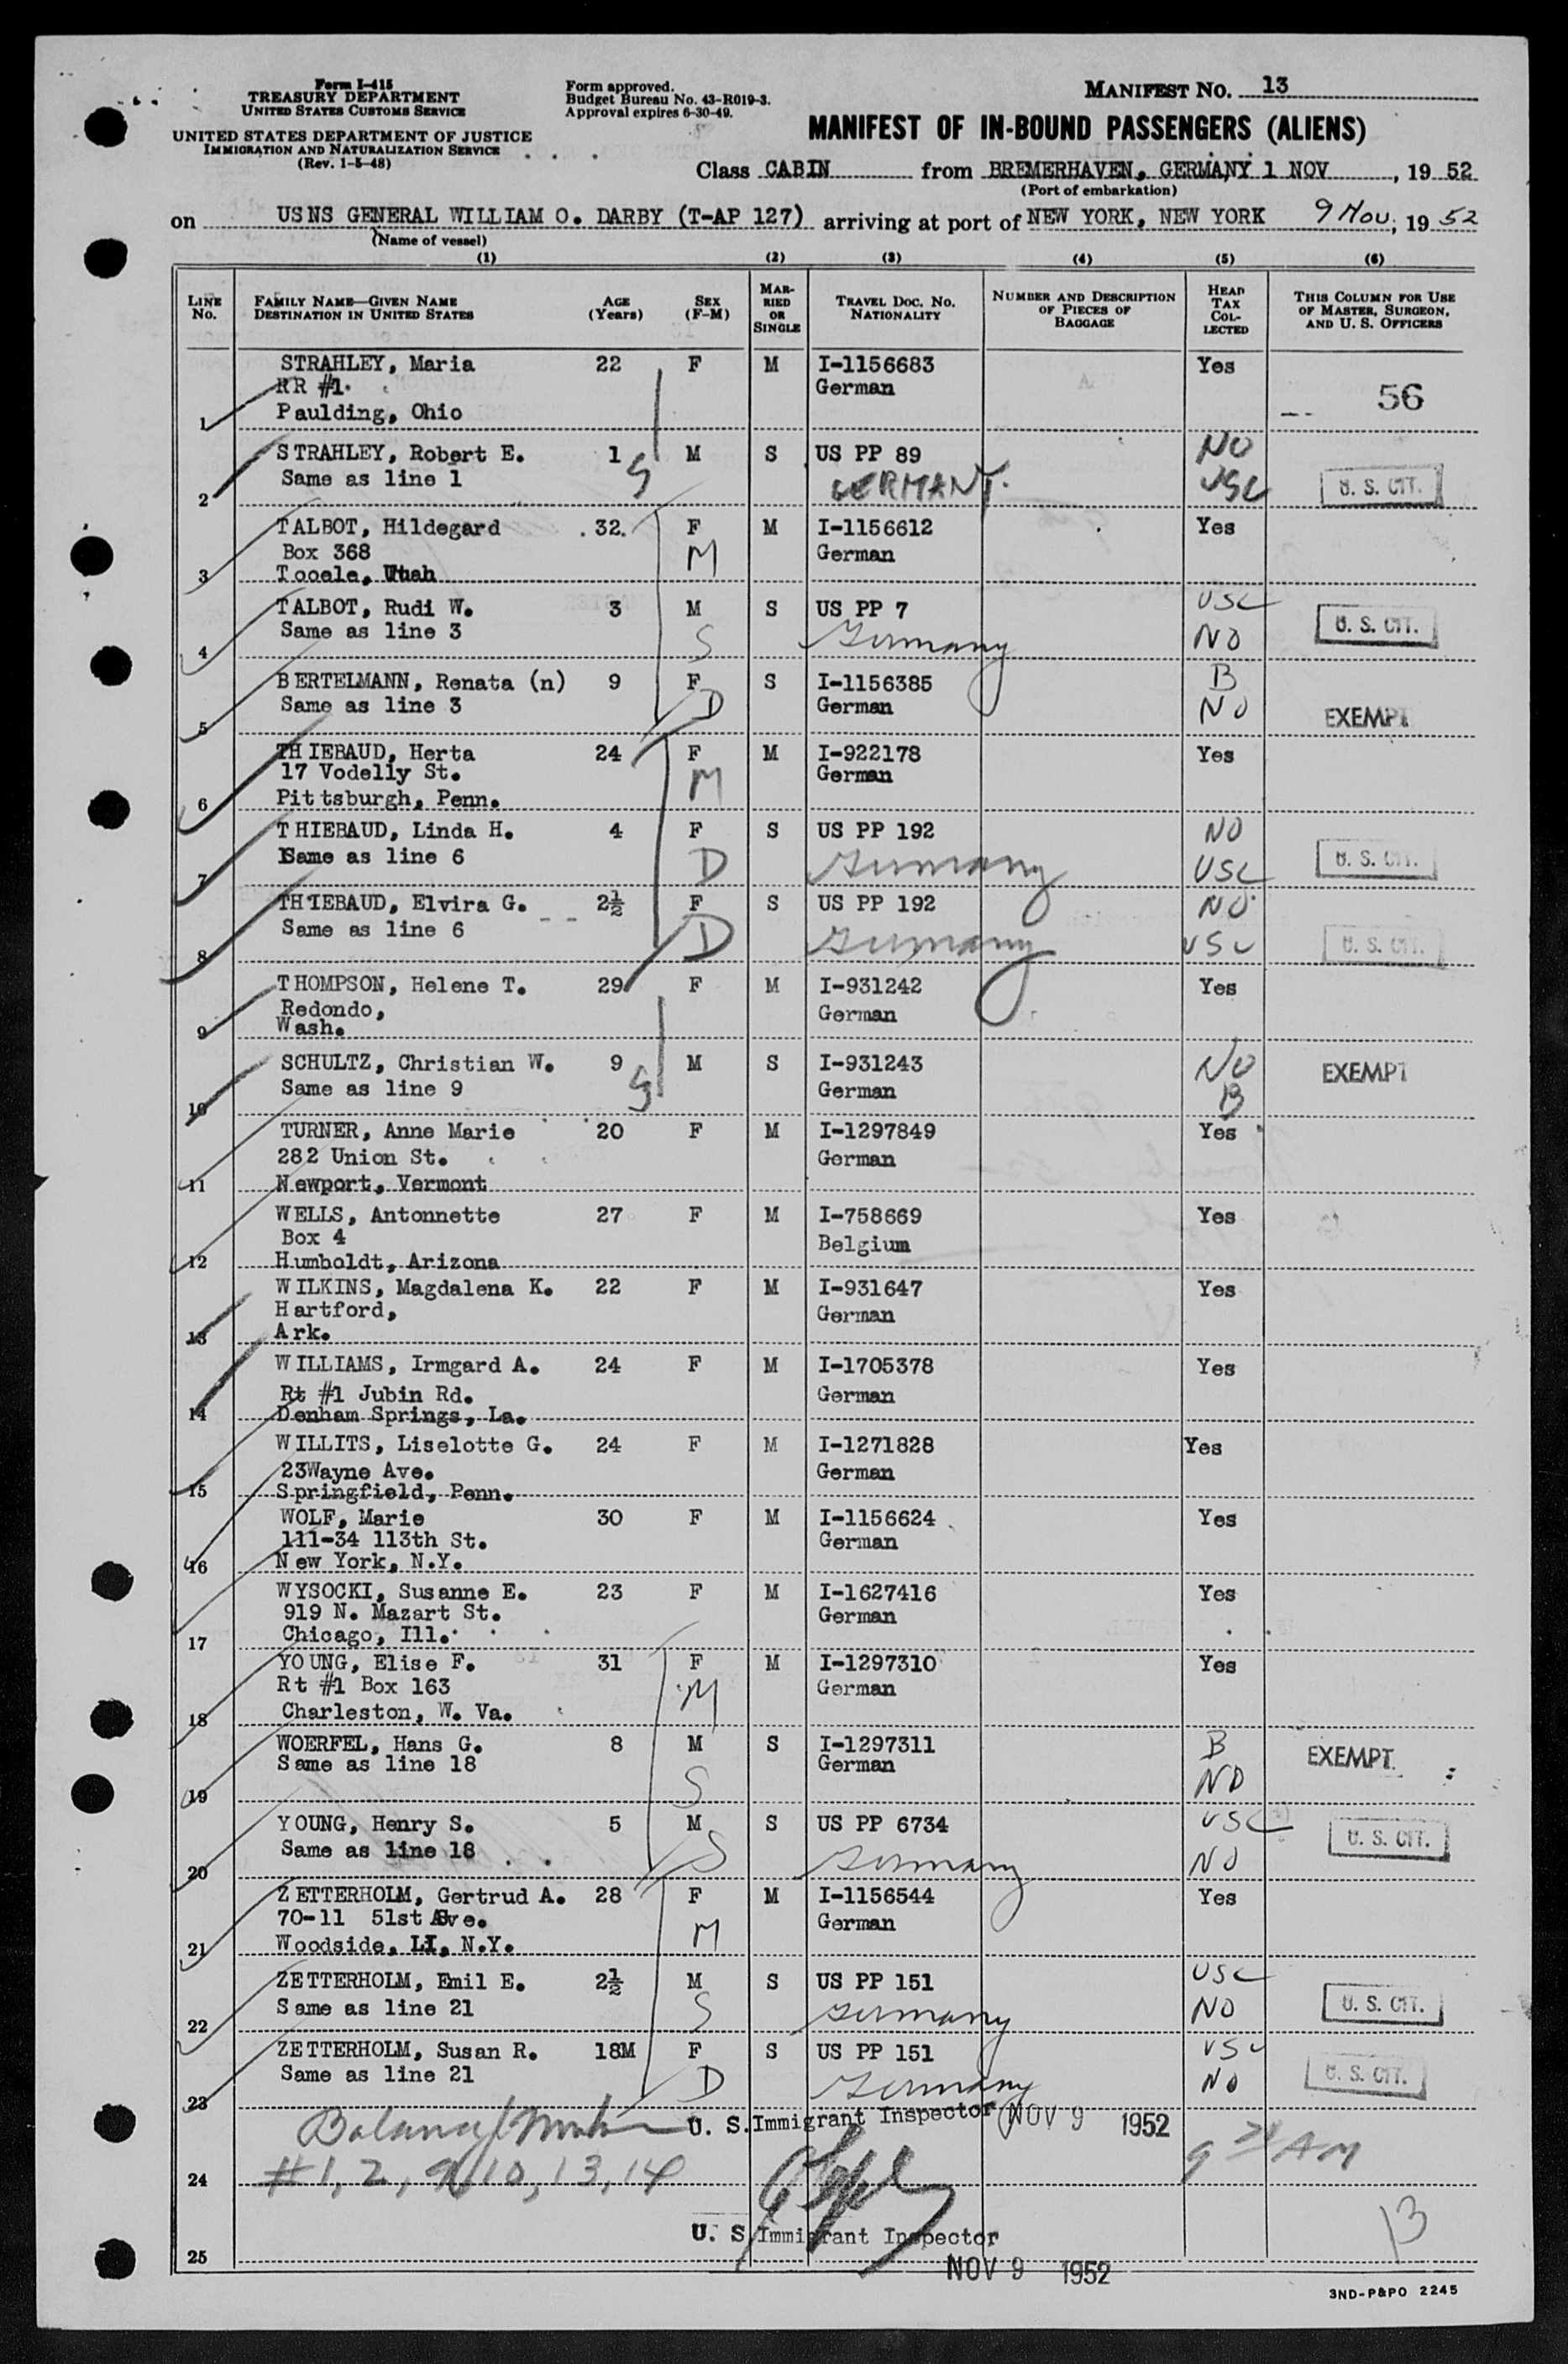 Form I-415
TREASURY DEPARTMENT
UNITED STATES CUSTOMS SERVICE
UNITED STATES DEPARTMENT OF JUSTICE
IMMIGRATION AND NATURALIZATION SERVICE
(Rev. 1-5-48)
Form approved.
Budget Bureau No. 43-R019-3.
Approval expires 6-30-49.
MANIFEST NO. 13
MANIFEST OF IN-BOUND PASSENGERS (ALIENS)
Class CABIN from BREMERHAVEN, GERMANY 1 NOV, 19 52
(Port of embarkation)
on USNS GENERAL WILLIAM O. DARBY (T-AP 127) arriving at port of NEW YORK, NEW YORK 9 Nov, 19 52
(Name of vessel)
(1) (2) (3) (4) (5) (6)
LINE NO. FAMILY NAME—GIVEN NAME DESTINATION IN UNITED STATES AGE (Years) SEX (F-M) MARRIED OR SINGLE TRAVEL DOC. NO. NATIONALITY NUMBER AND DESCRIPTION OF PIECES OF BAGGAGE HEAD TAX COLLECTED THIS COLUMN FOR USE OF MASTER, SURGEON, AND U. S. OFFICERS
STRAHLEY, Maria 22 F M I-1156683 Yes
RR #1 German 56
1 Paulding, Ohio
STRAHLEY, Robert E. 1 M S US PP 89 NO
Same as line 1 S GERMANY. USC U. S. CIT.
2
TALBOT, Hildegard 32 F M I-1156612 Yes
Box 368 M German
3 Tooele, Utah
TALBOT, Rudi W. 3 M S US PP 7 USC
Same as line 3 S Germany NO U. S. CIT.
4
BERTELMANN, Renata (n) 9 F S I-1156385 B
Same as line 3 D German NO EXEMPT
5
THIEBAUD, Herta 24 F M I-922178 Yes
17 Vodelly St. M German
6 Pittsburgh, Penn.
THIEBAUD, Linda H. 4 F S US PP 192 NO
Same as line 6 D Germany USC U. S. CIT.
7
THIEBAUD, Elvira G. 2½ F S US PP 192 NO
Same as line 6 D Germany USC U. S. CIT.
8
THOMPSON, Helene T. 29 F M I-931242 Yes
Redondo, German
9 Wash.
SCHULTZ, Christian W. 9 M S I-931243 NO EXEMPT
Same as line 9 S German B
10
TURNER, Anne Marie 20 F M I-1297849 Yes
282 Union St. German
11 Newport, Vermont
WELLS, Antonnette 27 F M I-758669 Yes
Box 4 Belgium
12 Humboldt, Arizona
WILKINS, Magdalena K. 22 F M I-931647 Yes
Hartford, German
13 Ark.
WILLIAMS, Irmgard A. 24 F M I-1705378 Yes
Rt #1 Jubin Rd. German
14 Denham Springs, La.
WILLITS, Liselotte G. 24 F M I-1271828 Yes
23Wayne Ave. German
15 Springfield, Penn.
WOLF, Marie 30 F M I-1156624 Yes
111-34 113th St. German
16 New York, N.Y.
WYSOCKI, Susanne E. 23 F M I-1627416 Yes
919 N. Mazart St. German
17 Chicago, Ill.
YOUNG, Elise F. 31 F M I-1297310 Yes
Rt #1 Box 163 M German
18 Charleston, W. Va.
WOERFEL, Hans G. 8 M S I-1297311 B EXEMPT
Same as line 18 S German NO
19
YOUNG, Henry S. 5 M S US PP 6734 USC U. S. CIT.
Same as line 18 S Germany NO
20
ZETTERHOLM, Gertrud A. 28 F M I-1156544 Yes
70-11 51st Ave. M German
21 Woodside, LI, N.Y.
ZETTERHOLM, Emil E. 2½ M S US PP 151 USC
Same as line 21 S Germany NO U. S. CIT.
22
ZETTERHOLM, Susan R. 18M F S US PP 151 USC
Same as line 21 D Germany NO U. S. CIT.
23
U. S. Immigrant Inspector NOV 9 1952
24 #1, 2, 9, 10, 13, 14 9 AM
U. S. Immigrant Inspector 13
25
NOV 9 1952
3ND-P&PO 2245